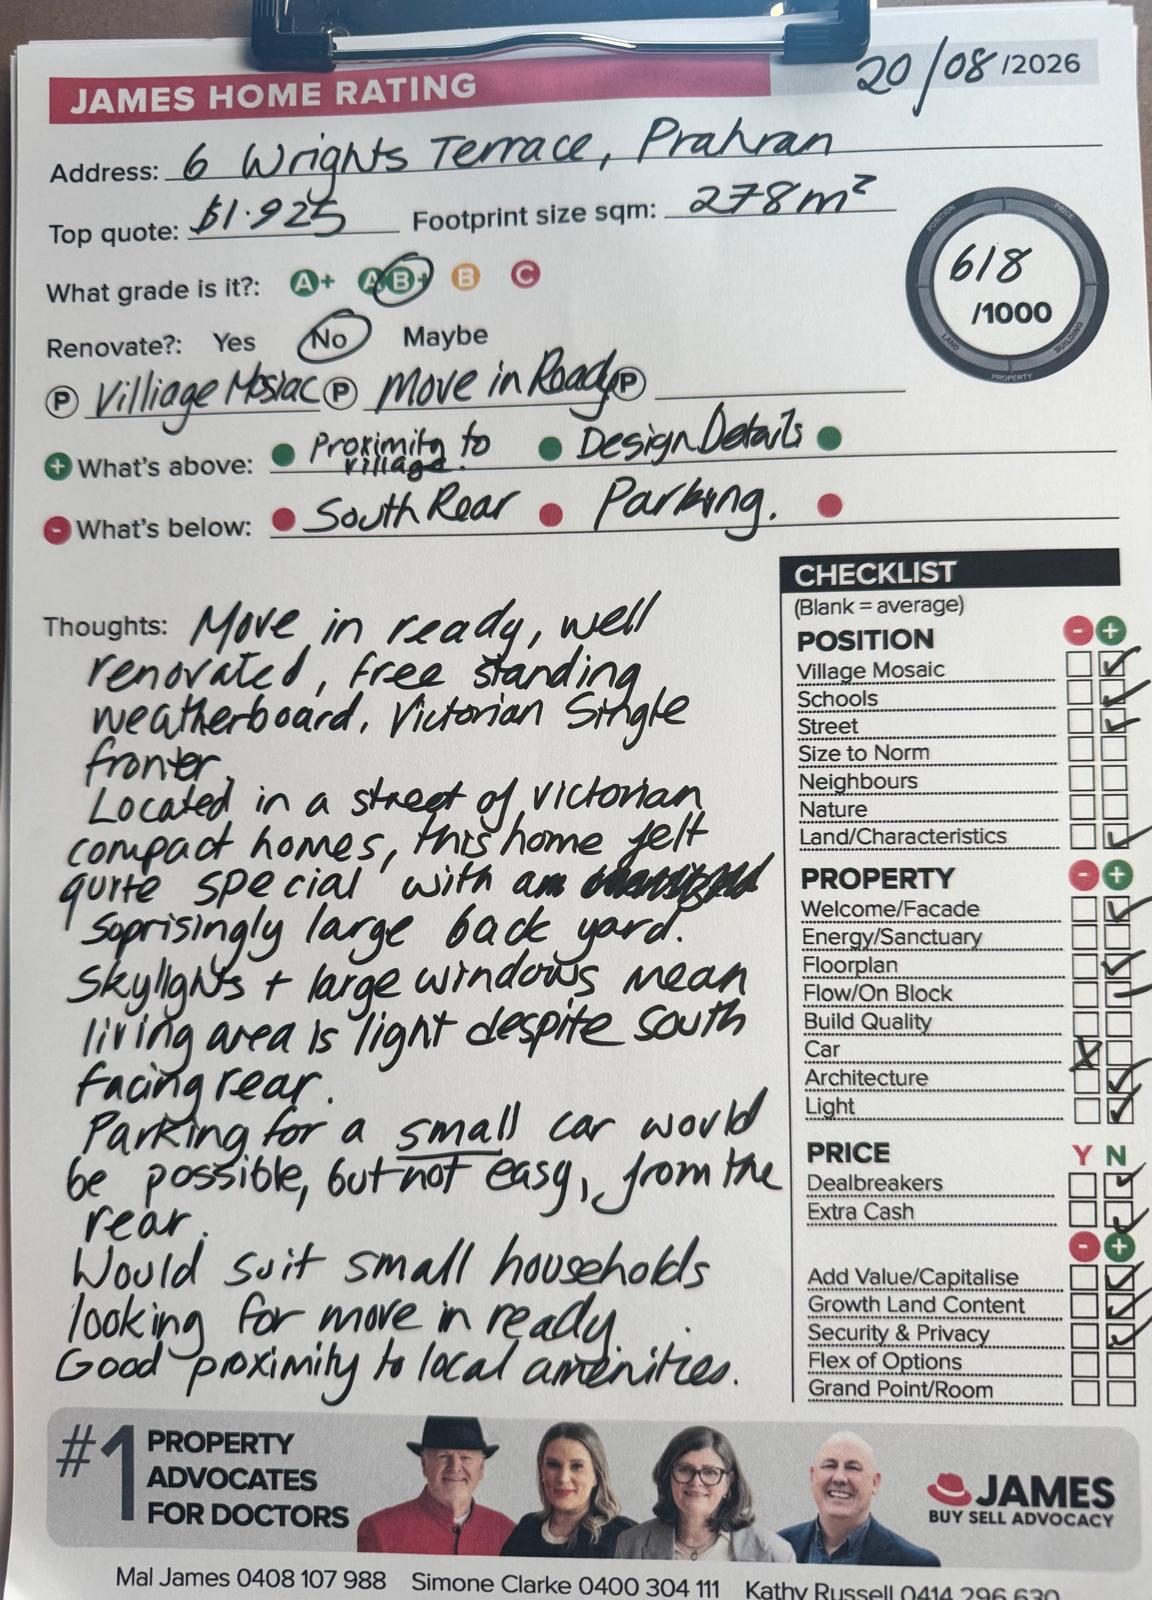 JAMES HOME RATING
20/08/2026
Address: 6 Wrights Terrace, Prahran
Top quote: $1.925 Footprint size sqm: 278m²
POSITION PRICE
618
/1000
LAND BUILDING
PROPERTY
What grade is it?: A+ A B+ B C
Renovate?: Yes No Maybe
P Villiage Mosiac P Move in Ready P
+ What's above: Proximity to village. Design Details
- What's below: South Rear Parking.
Thoughts: Move in ready, well
renovated, free standing
weatherboard, Victorian Single
fronter.
Located in a street of victorian
compact homes, this home felt
quite special with a
soprisingly large back yard.
Skylights + large windows mean
living area is light despite south
facing rear.
Parking for a small car would
be possible, but not easy, from the
rear.
Would suit small households
looking for move in ready
Good proximity to local amenities.
CHECKLIST
(Blank = average)
POSITION - +
Village Mosaic
Schools
Street
Size to Norm
Neighbours
Nature
Land/Characteristics
PROPERTY - +
Welcome/Facade
Energy/Sanctuary
Floorplan
Flow/On Block
Build Quality
Car
Architecture
Light
PRICE Y N
Dealbreakers
Extra Cash
- +
Add Value/Capitalise
Growth Land Content
Security & Privacy
Flex of Options
Grand Point/Room
#1 PROPERTY
ADVOCATES
FOR DOCTORS
JAMES
BUY SELL ADVOCACY
Mal James 0408 107 988 Simone Clarke 0400 304 111 Kathy Russell 0414 296 630